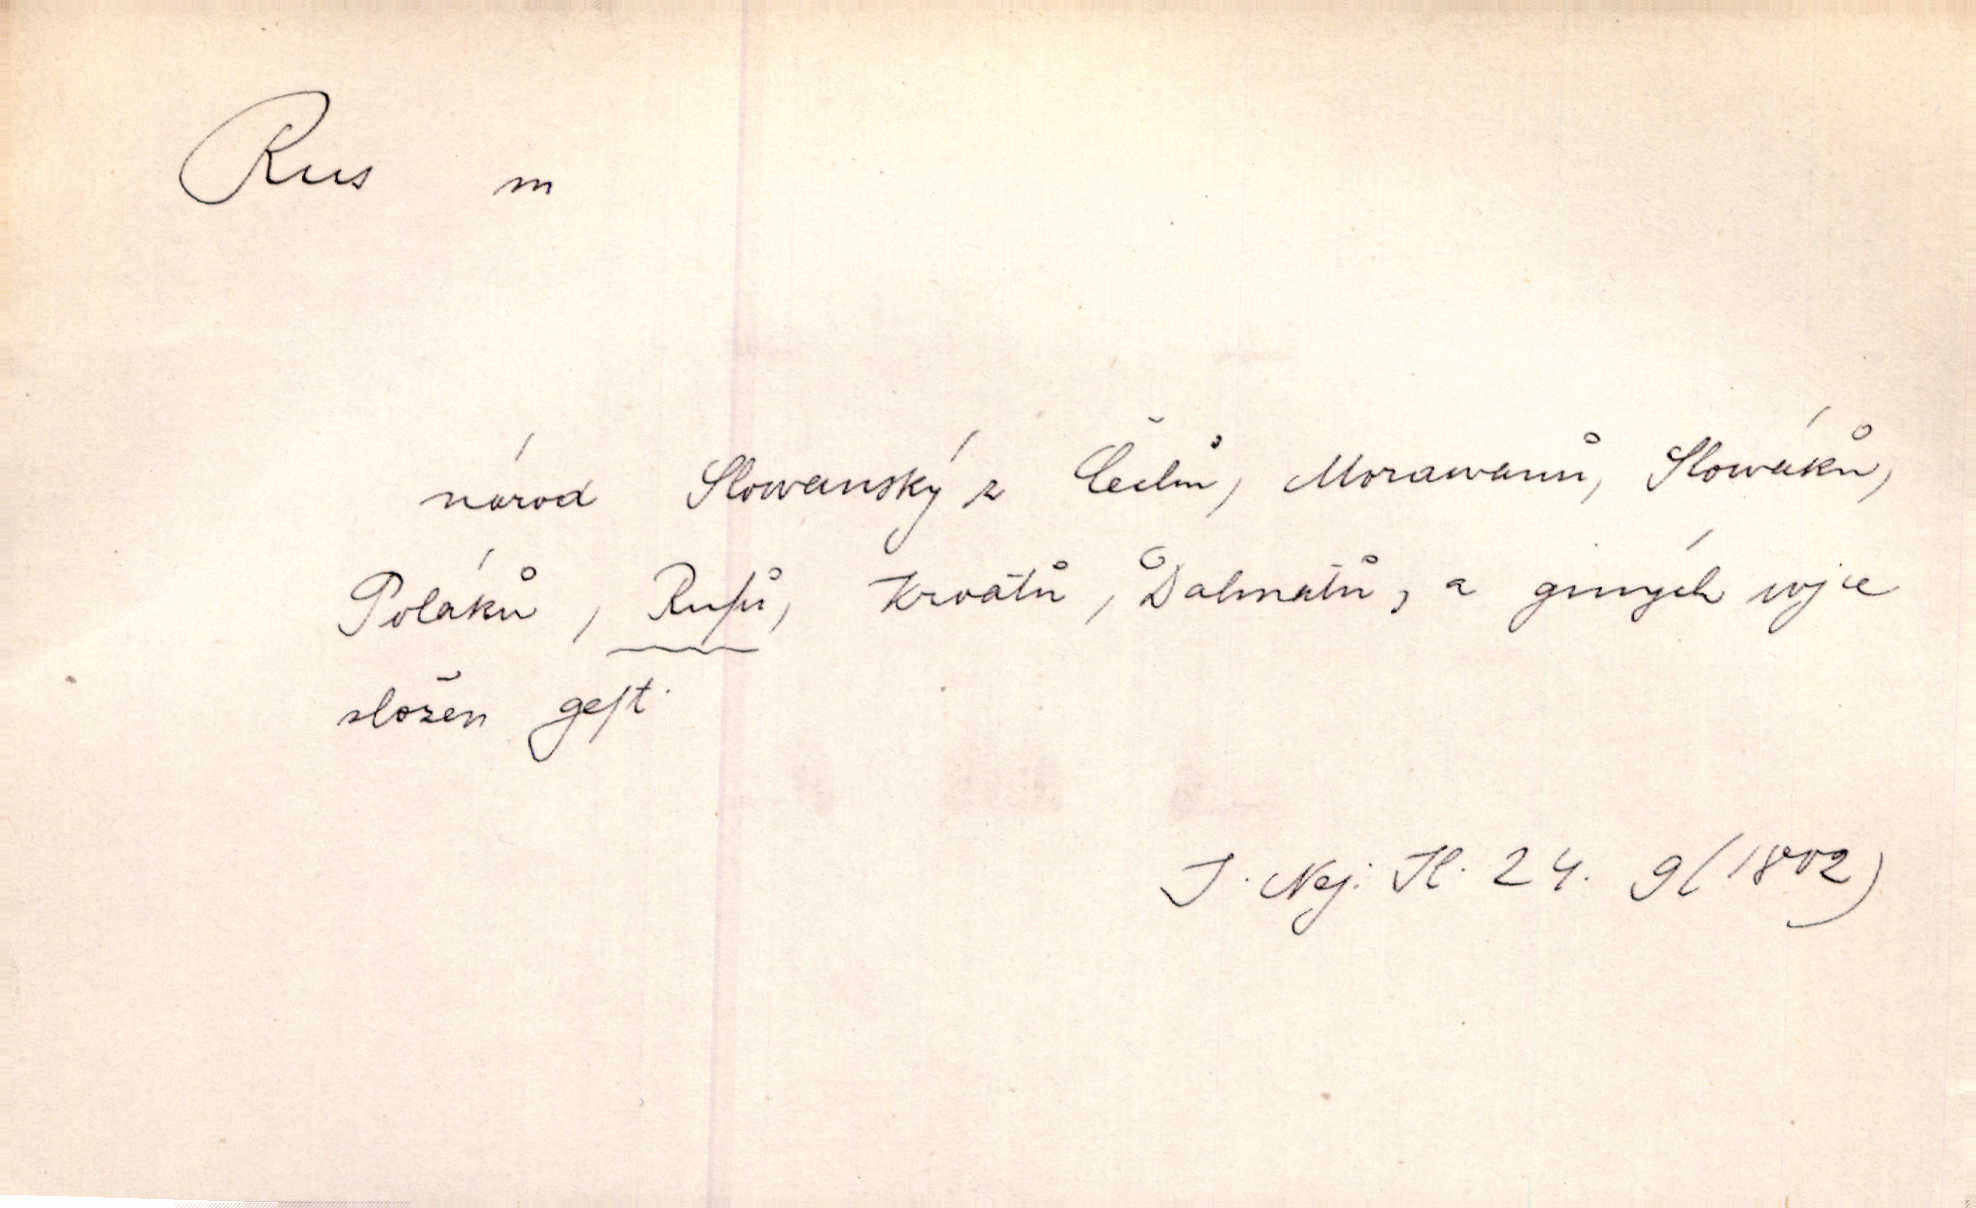 Rus m
národ Slowanský z Čechů, Morawanů, Slowáků,
Poláků, Ruſů, Krvátů, Dalmatů, a giných wjce
složen geſt.
J. Nej. Kl. 24. 9 (1802)